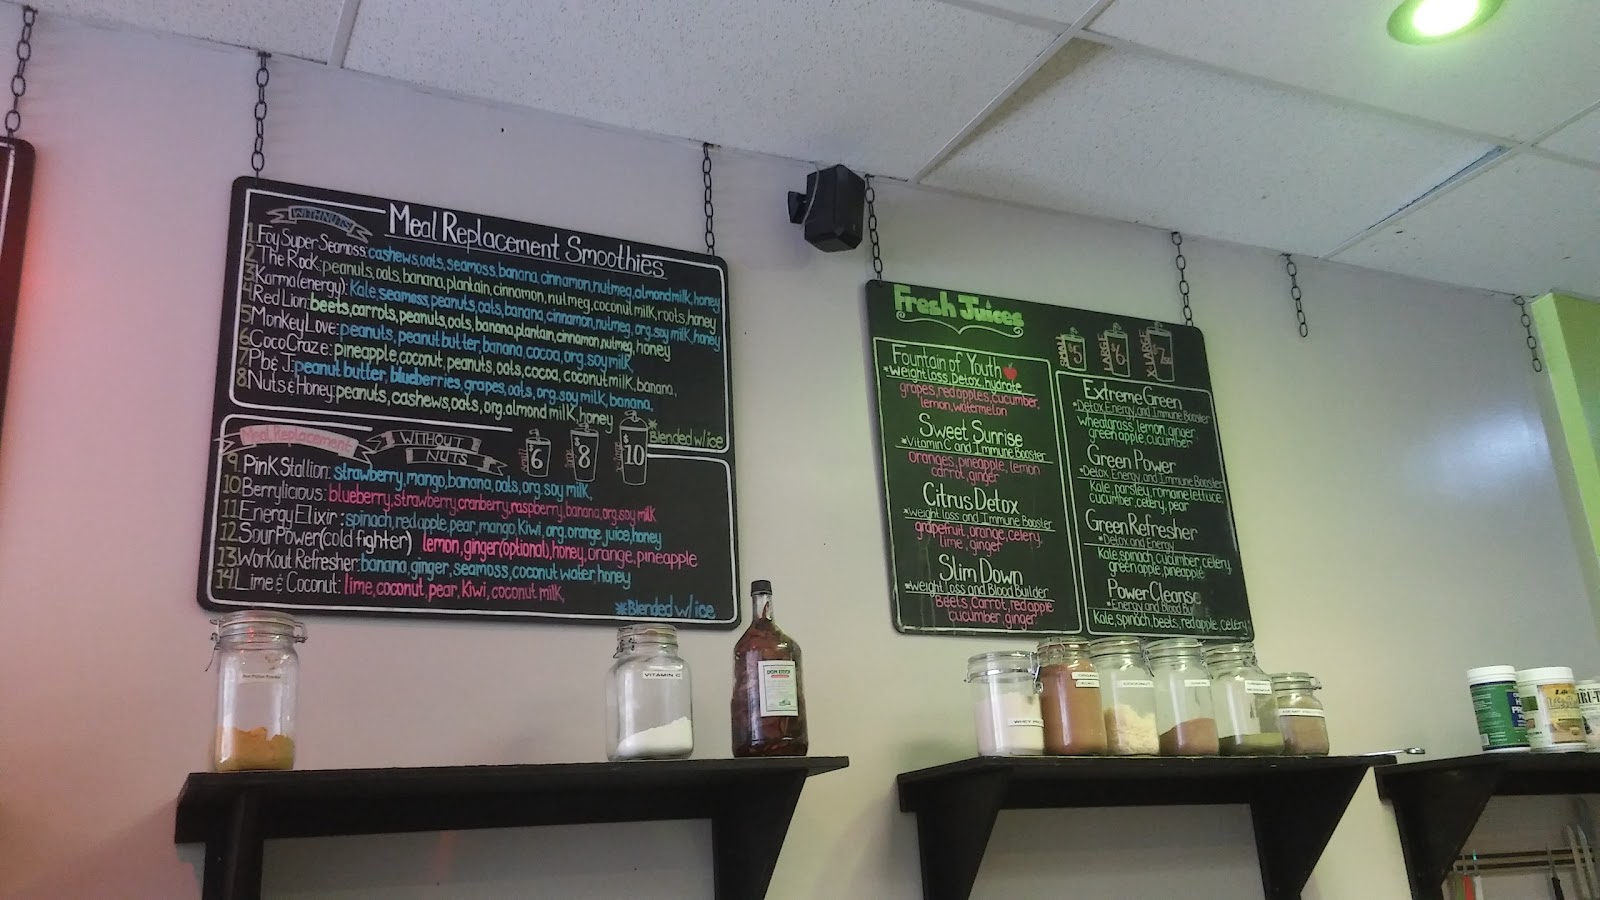 WITH NUTS
Meal Replacement Smoothies
1 Foy Super Seamoss: cashews, oats, seamoss, banana, cinnamon, nutmeg, almond milk, honey
2 The Rock: peanuts, oats, banana, plantain, cinnamon, nutmeg, coconut milk, roots, honey
3 Karma (energy): Kale, seamoss, peanuts, oats, banana, cinnamon, nutmeg, org. soy milk, honey
4 Red Lion: beets, carrots, peanuts, oats, banana, plantain, cinnamon, nutmeg, honey
5 Monkey Love: peanuts, peanut butter, banana, cocoa, org. soy milk,
6 Coco Craze: pineapple, coconut, peanuts, oats, cocoa, coconut milk, banana,
7 Pb & J: peanut butter, blueberries, grapes, oats, org. soy milk, banana,
8 Nuts & Honey: peanuts, cashews, oats, org. almond milk, honey
*Blended w/ice
Meal Replacement
WITHOUT NUTS
Small $6
large $8
x-large $10
9. Pink Stallion: strawberry, mango, banana, oats, org. soy milk,
10. Berrylicious: blueberry, strawberry, cranberry, raspberry, banana, org. soy milk
11. Energy Elixir: spinach, red apple, pear, mango, Kiwi, org. orange juice, honey
12. Sour Power (cold fighter) lemon, ginger (optional), honey, orange, pineapple
13. Workout Refresher: banana, ginger, seamoss, coconut water, honey
14. Lime & Coconut: lime, coconut, pear, Kiwi, coconut milk,
*Blended w/ice
Fresh Juices
SMALL $5
LARGE $6
X-LARGE
Fountain of Youth
*Weight loss, Detox, hydrate
grapes, red apples, cucumber,
lemon, watermelon
Sweet Sunrise
*Vitamin C and Immune Booster
oranges, pineapple, lemon
carrot, ginger
Citrus Detox
*Weight loss and Immune Booster
grapefruit, orange, celery,
lime, ginger
Slim Down
*Weight loss and Blood Builder
Beets, Carrot, red apple
cucumber, ginger
Extreme Green
*Detox, Energy and Immune Booster
Wheatgrass, lemon, ginger,
green apple cucumber
Green Power
*Detox, Energy, and Immune Booster
Kale, parsley, romaine lettuce,
cucumber, celery, pear
Green Refresher
*Detox and Energy
Kale, spinach, cucumber, celery,
green apple, pineapple
Power Cleanse
*Energy and Blood Bu
Kale, spinach, beets, red apple, celery
VITAMIN C
WHEY